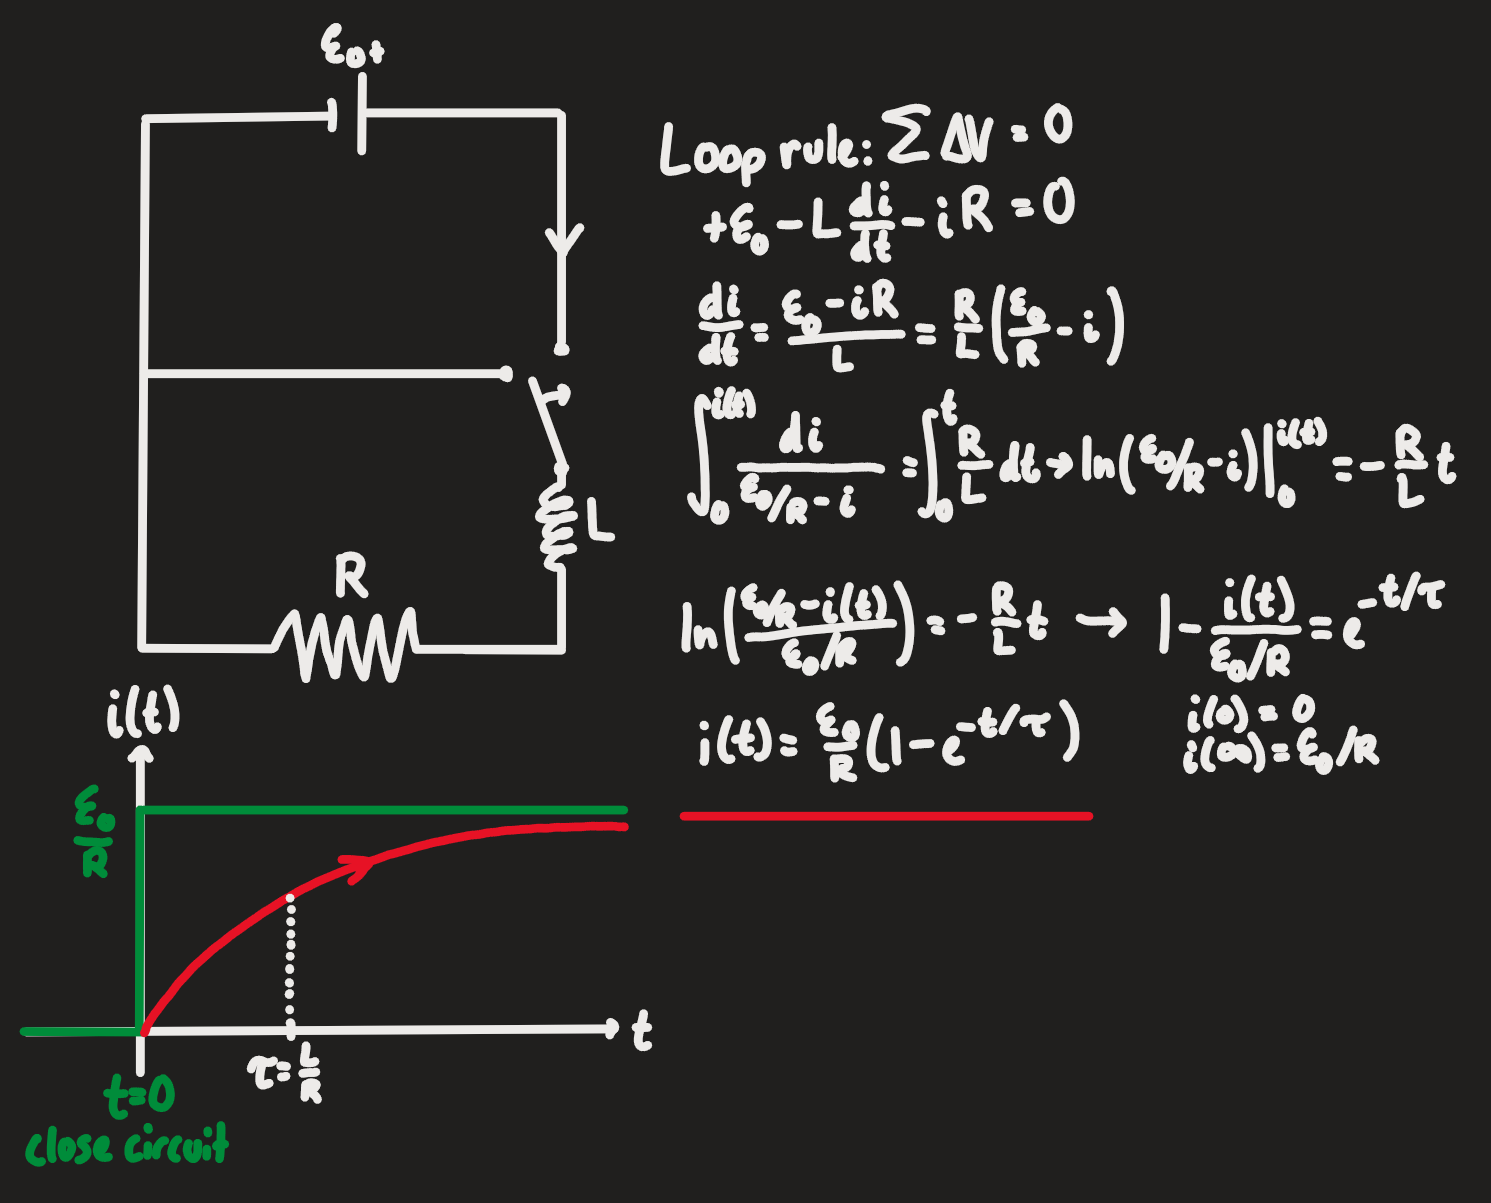 ε₀ +
L
R
Loop rule: Σ ΔV = 0
+ε₀ - L di/dt - iR = 0
di/dt = (ε₀ - iR)/L = R/L (ε₀/R - i)
∫₀^i(t) di/(ε₀/R - i) = ∫₀^t R/L dt → ln(ε₀/R - i)|₀^i(t) = - R/L t
ln((ε₀/R - i(t))/(ε₀/R)) = - R/L t → 1 - i(t)/(ε₀/R) = e^(-t/τ)
i(t) = ε₀/R (1 - e^(-t/τ))
i(0) = 0
i(∞) = ε₀/R
i(t)
ε₀/R
t
τ = L/R
t=0
close circuit